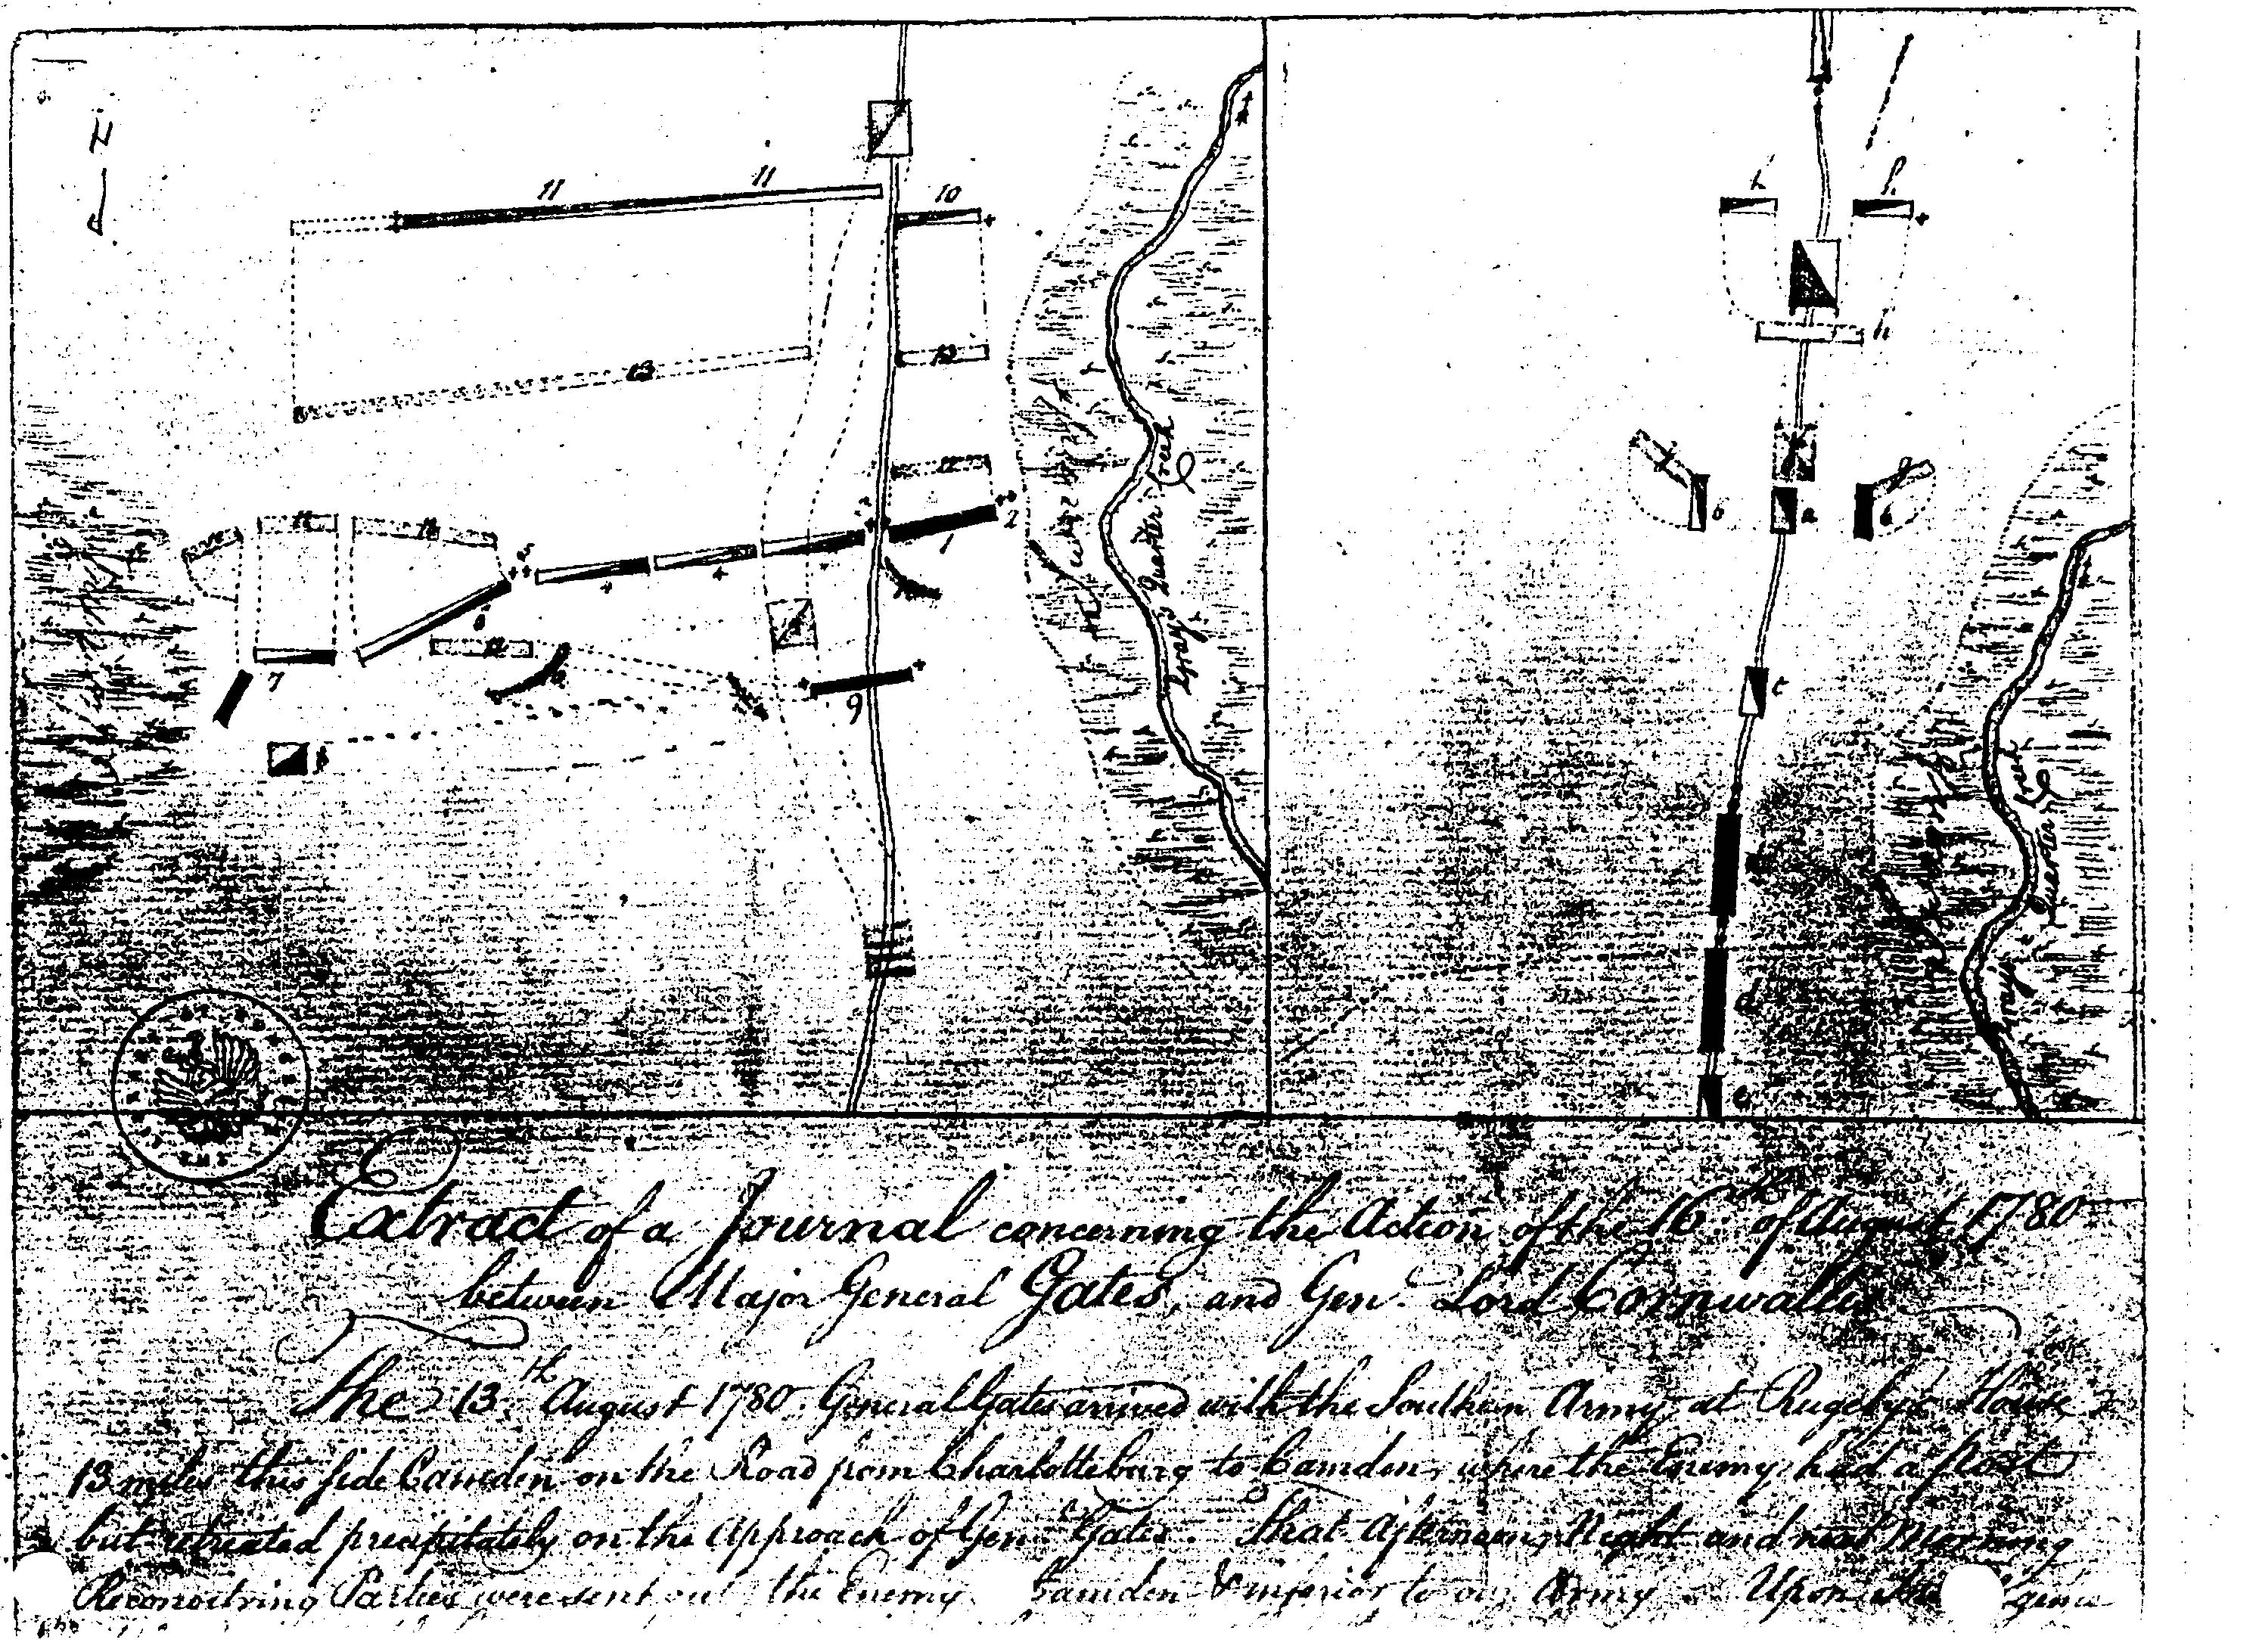 N
11 11
10
13
12
12
1
2
4
4
5
6
7
8
9
Grays Quarter Creek
h
f
a
b
c
d
e
g
Grays Quarter Creek
Extract of a Journal concerning the Action of the 16th. of August 1780
between Major General Gates, and Genl. Lord Cornwallis
The 13th. August 1780. General Gates arrived with the Southern Army at Rugely's House
13 miles this side Camden on the Road from Charlotteburg to Camden, where the Enemy had a Post
but retreated precipitately on the Approach of Genl. Gates. That Afternoon, Night and next Morning
Reconoitring Parties were sent out the Enemy Camden & inferior to our Army Upon